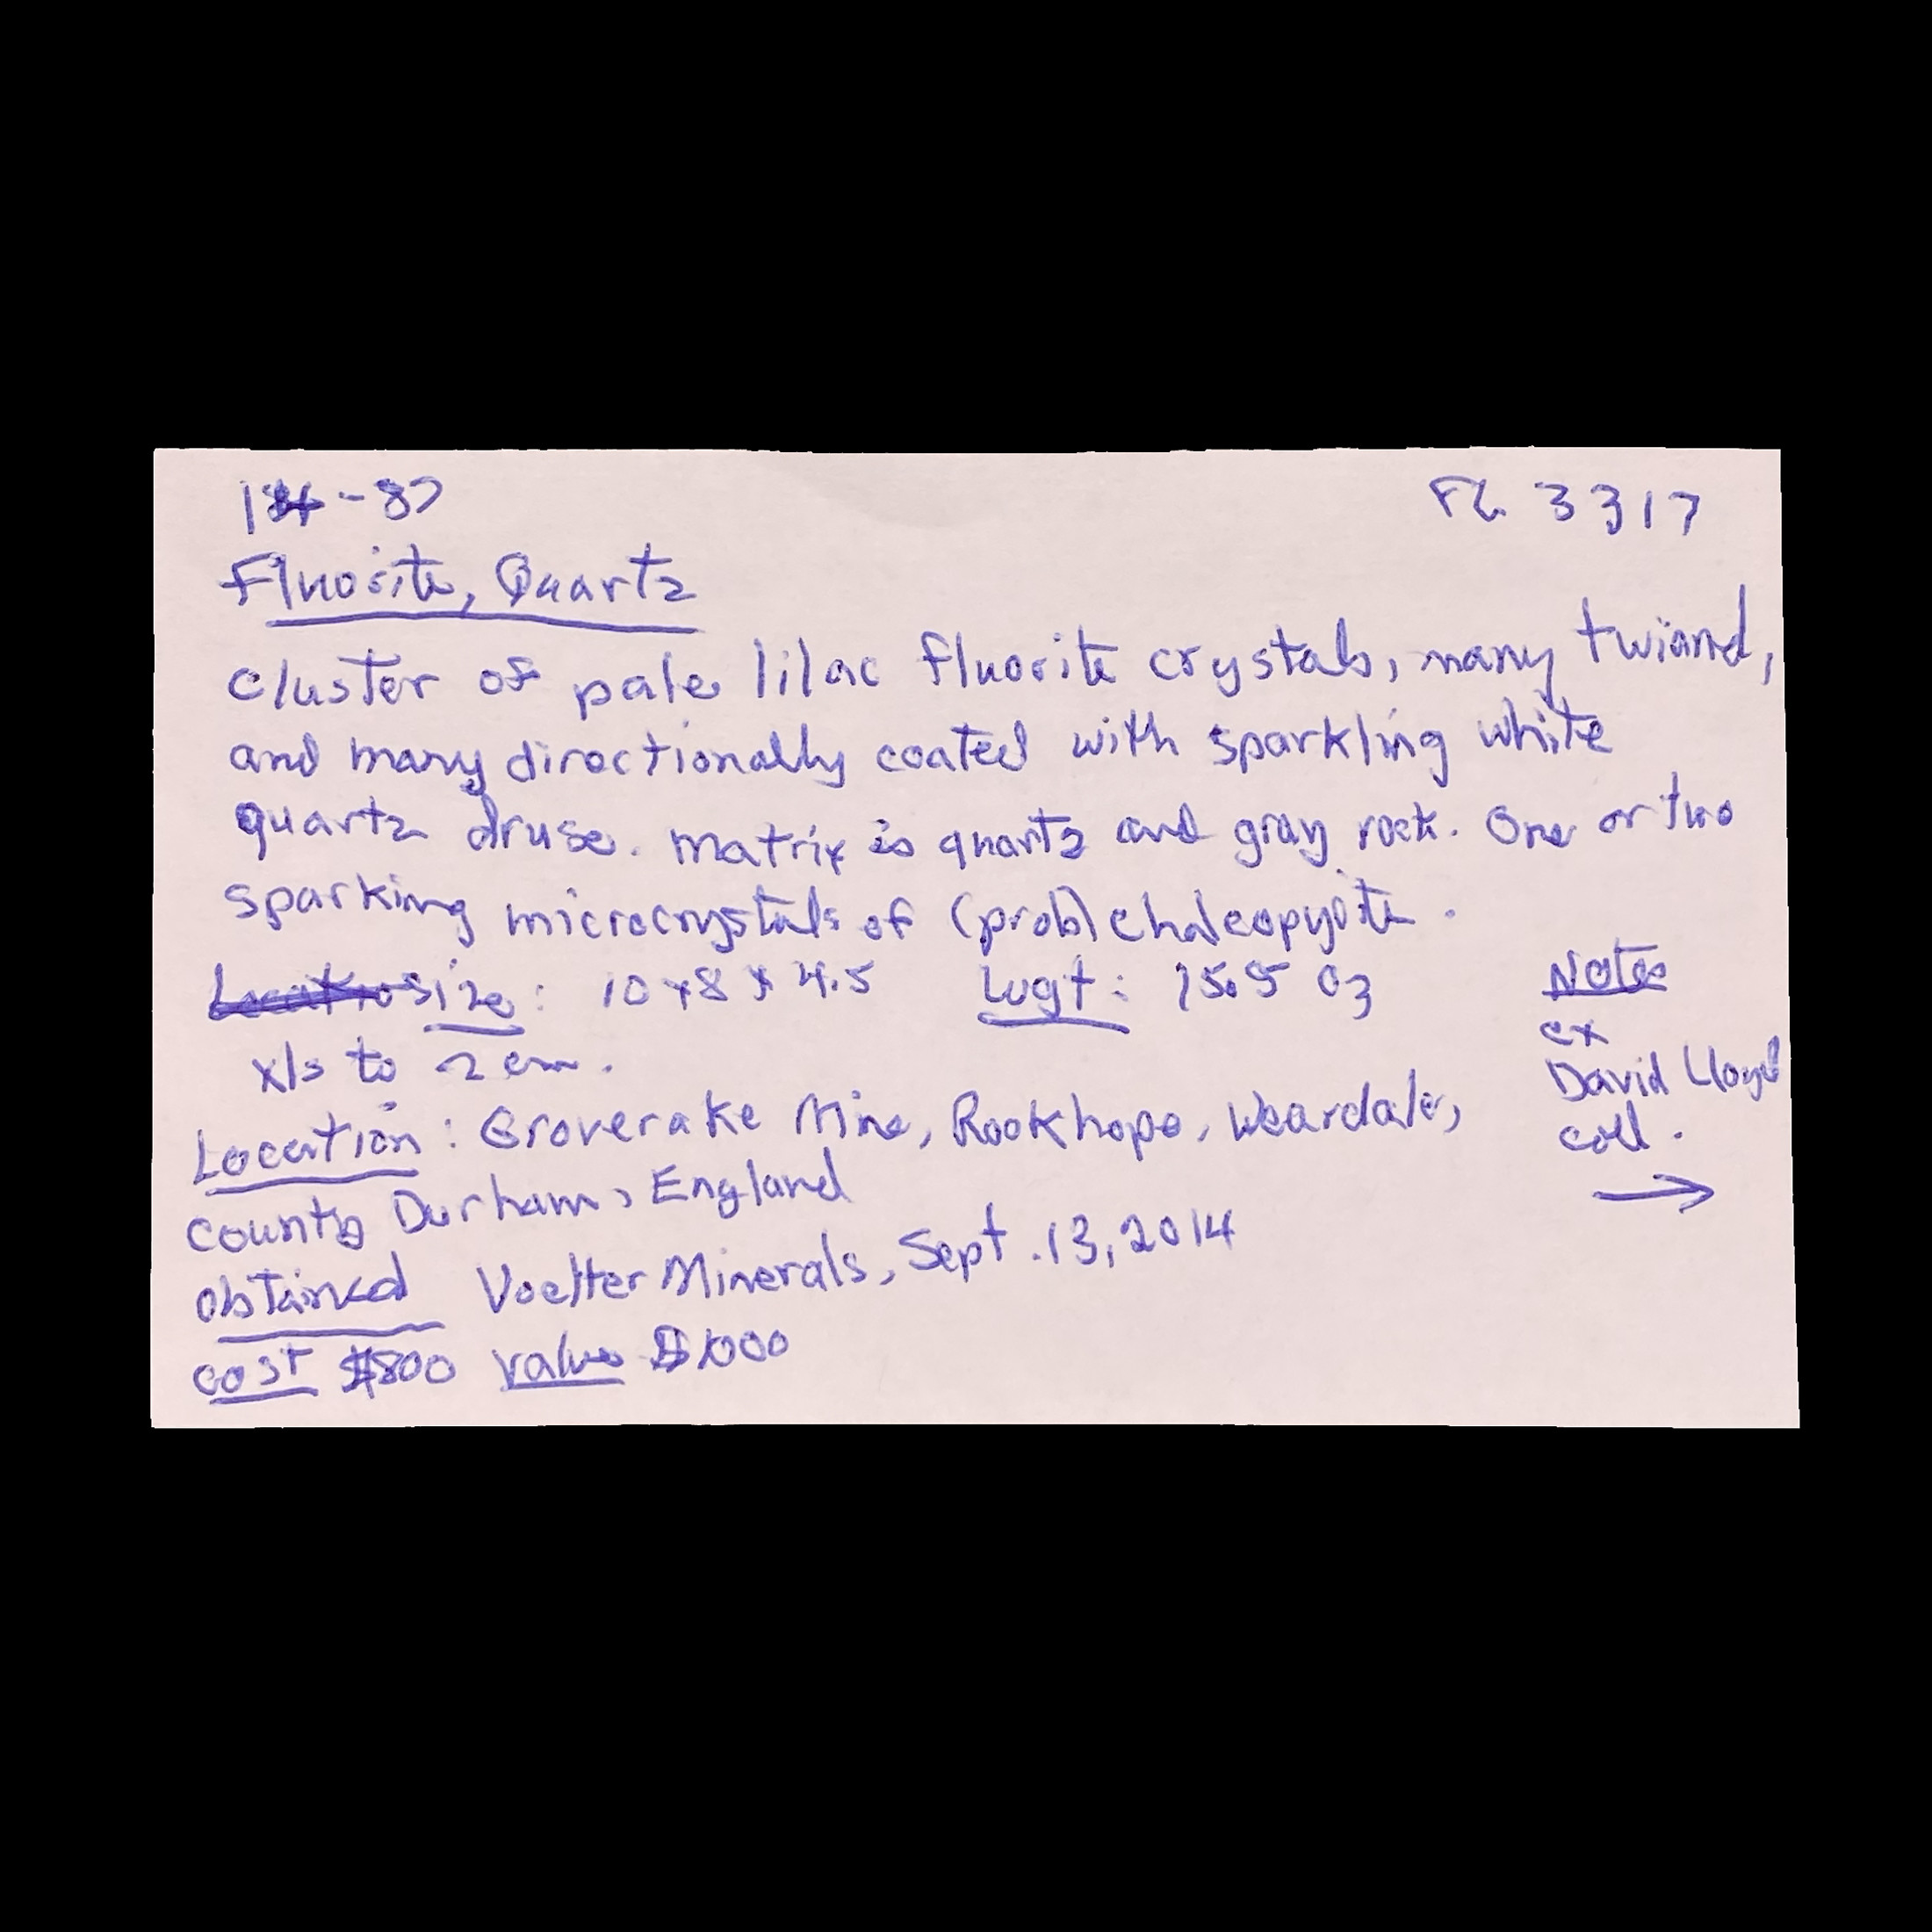 14-87
FL 3317
Fluorite, Quartz
Cluster of pale lilac fluorite crystals, many twiand,
and many directionally coated with sparkling white
quartz druse. Matrix is quartz and gray rock. One or two
sparking microcrystals of (prob) chalcopyrite.
Size: 10 x 8 x 4.5 Wgt: 15.5 oz
xls to 2 cm.
Notes
ex
David Lloyd
coll.
→
Location: Groverake Mine, Rookhope, Weardale,
County Durham, England
Obtained Voelter Minerals, Sept. 13, 2014
Cost $800 Value $1000